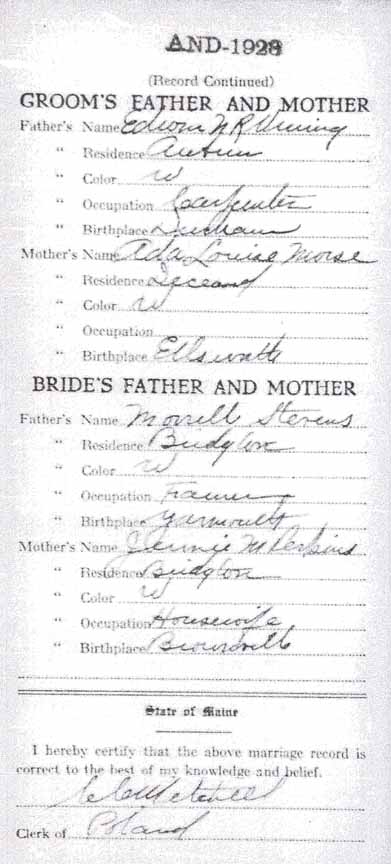 AND-1928
(Record Continued)
GROOM'S FATHER AND MOTHER
Father's Name Edwin N R Vining
" Residence Auburn
" Color w
" Occupation Carpenter
" Birthplace Durham
Mother's Name Ada Louise Morse
" Residence Deceased
" Color w
" Occupation
" Birthplace Ellsworth
BRIDE'S FATHER AND MOTHER
Father's Name Morrell Stevens
" Residence Bridgton
" Color w
" Occupation Farmer
" Birthplace Yarmouth
Mother's Name Jennie M Perkins
" Residence Bridgton
" Color w
" Occupation Housewife
" Birthplace Brownville
State of Maine
I hereby certify that the above marriage record is
correct to the best of my knowledge and belief.
Mitchell
Clerk of Poland